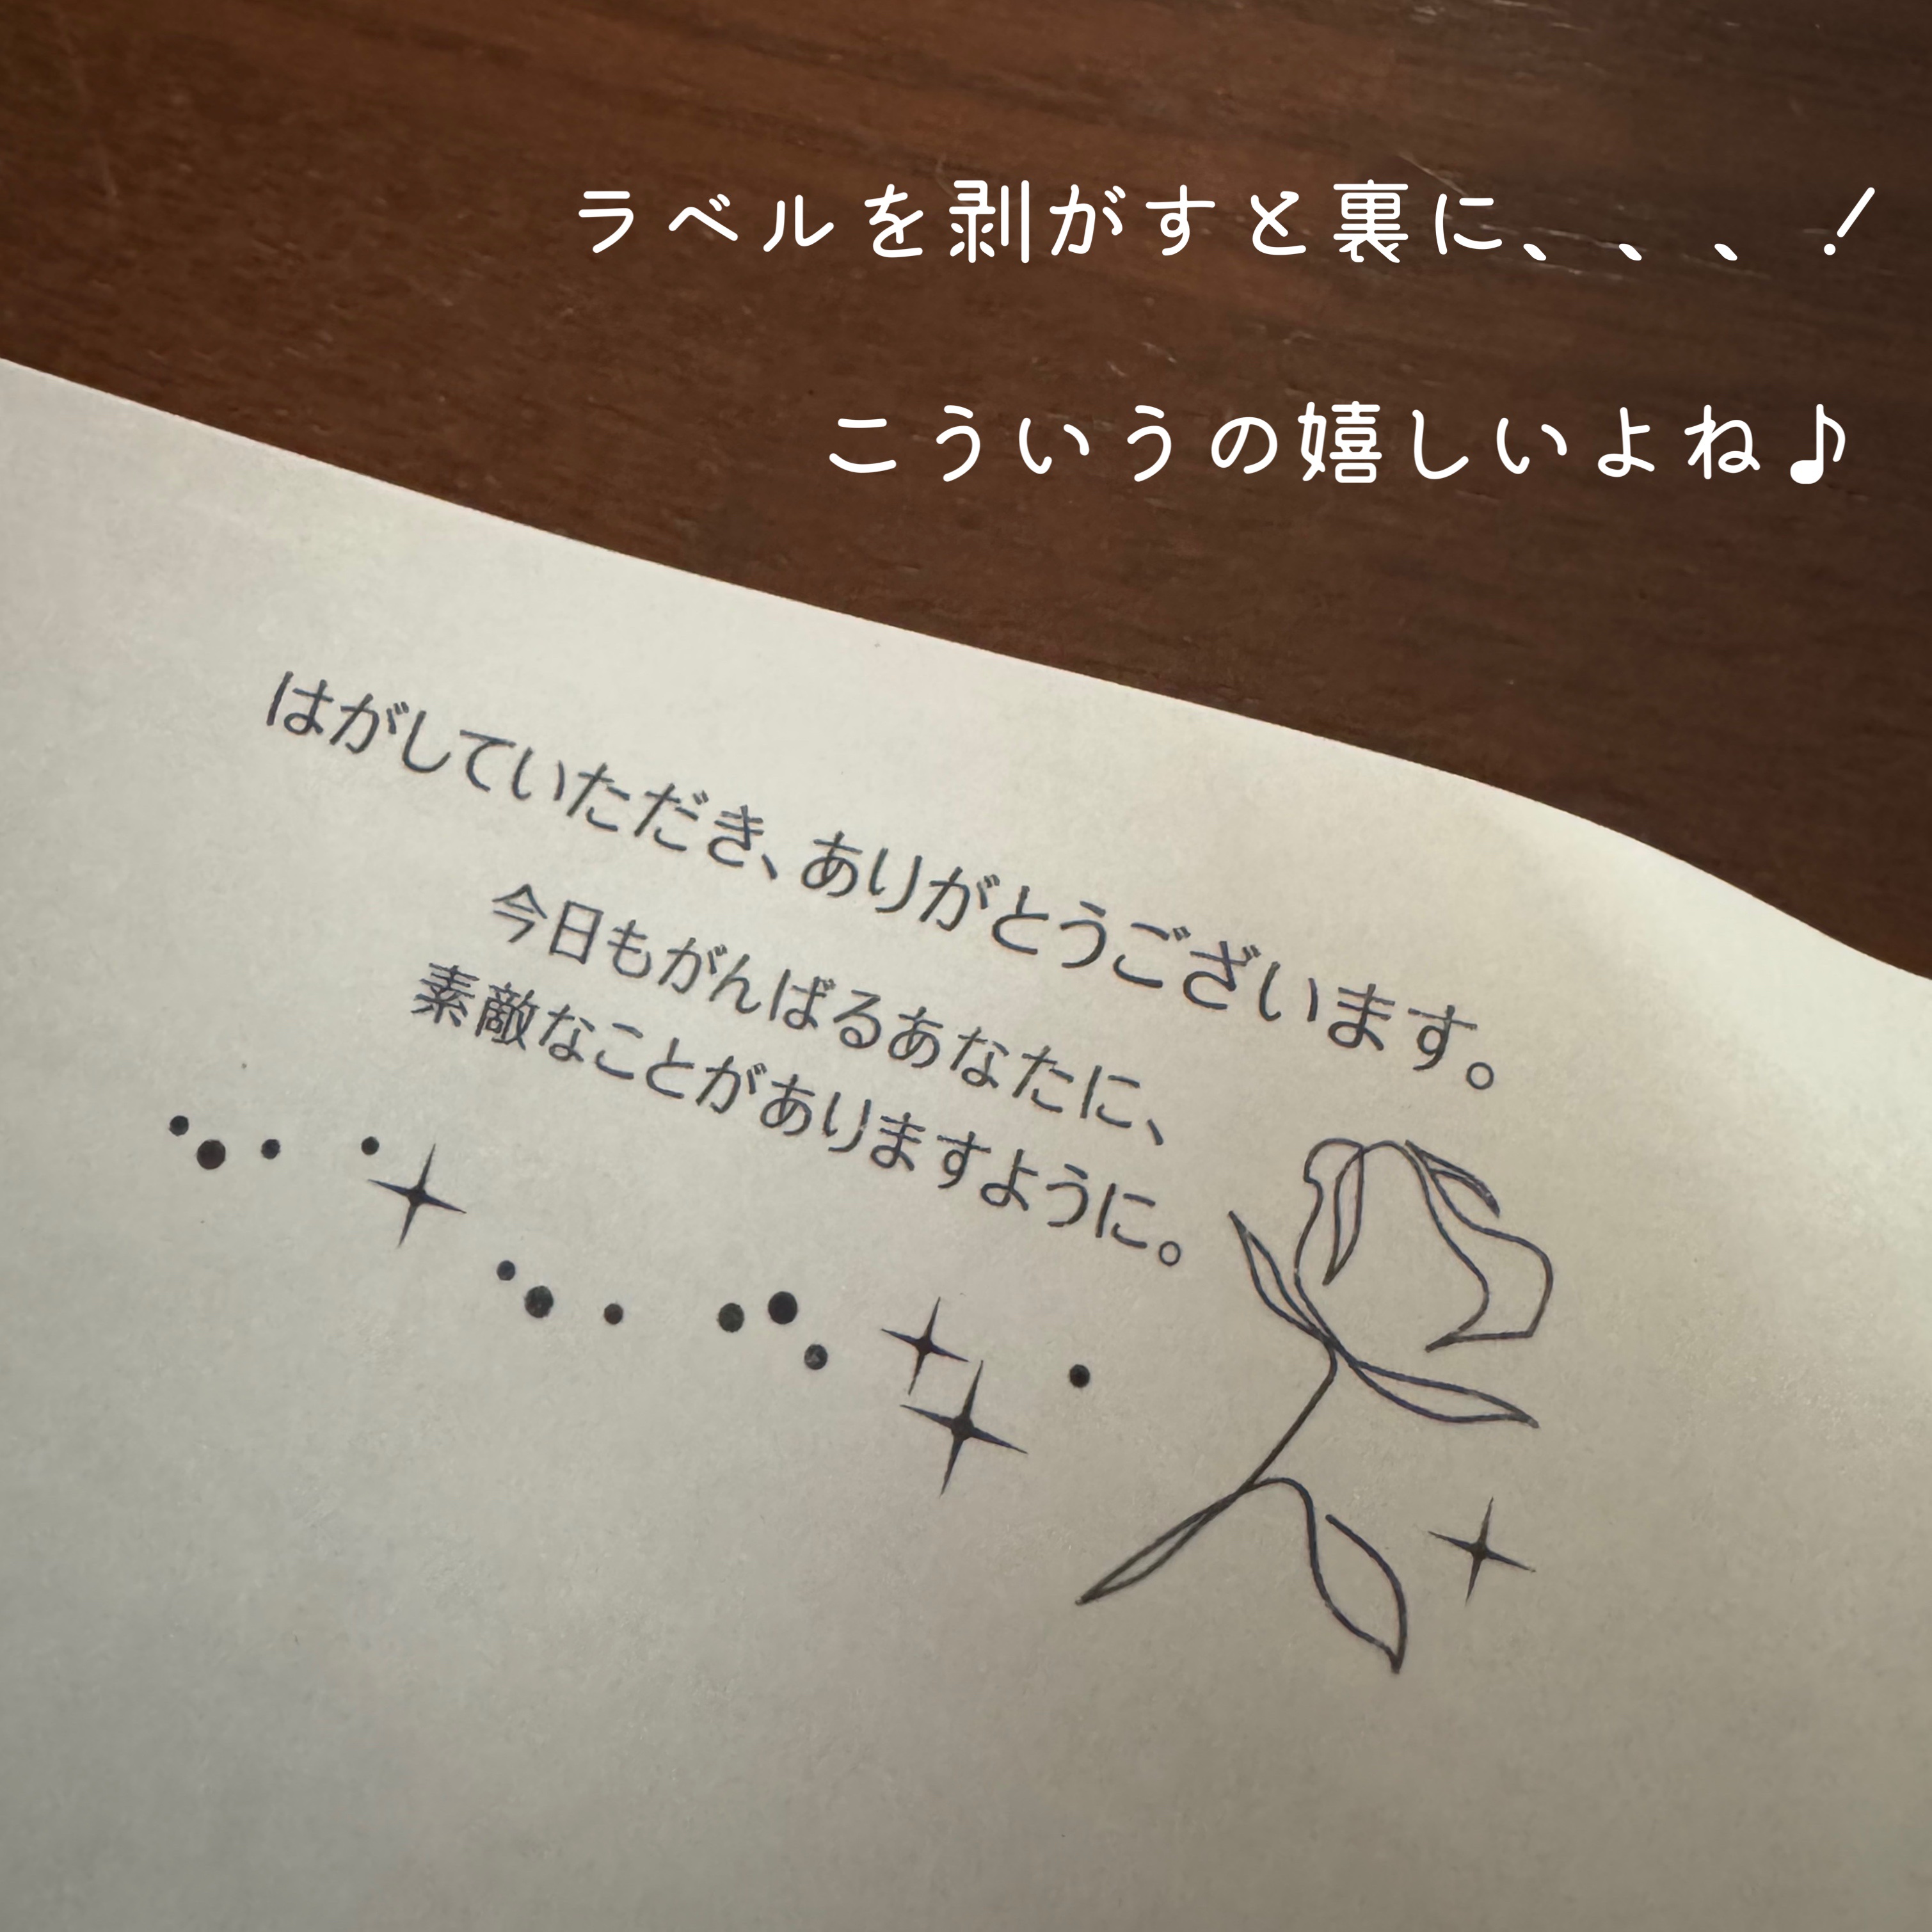 ラベルを剥がすと裏に、、、！
こういうの嬉しいよね♪
はがしていただき、ありがとうございます。
今日もがんばるあなたに、
素敵なことがありますように。